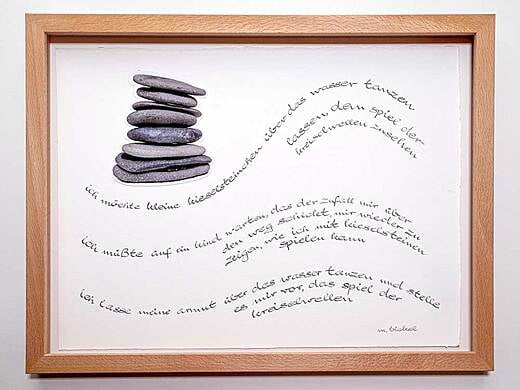 ich möchte kleine kieselsteinchen über das wasser tanzen
lassen, dem spiel der
kreiselwellen zusehen
ich müßte auf ein kind warten, das der zufall mir über
den weg schickt, mir wieder zu
zeigen, wie ich mit kieselsteinen
spielen kann
ich lasse meine armut über das wasser tanzen und stelle
es mir vor, das spiel der
kreiselwellen
m.